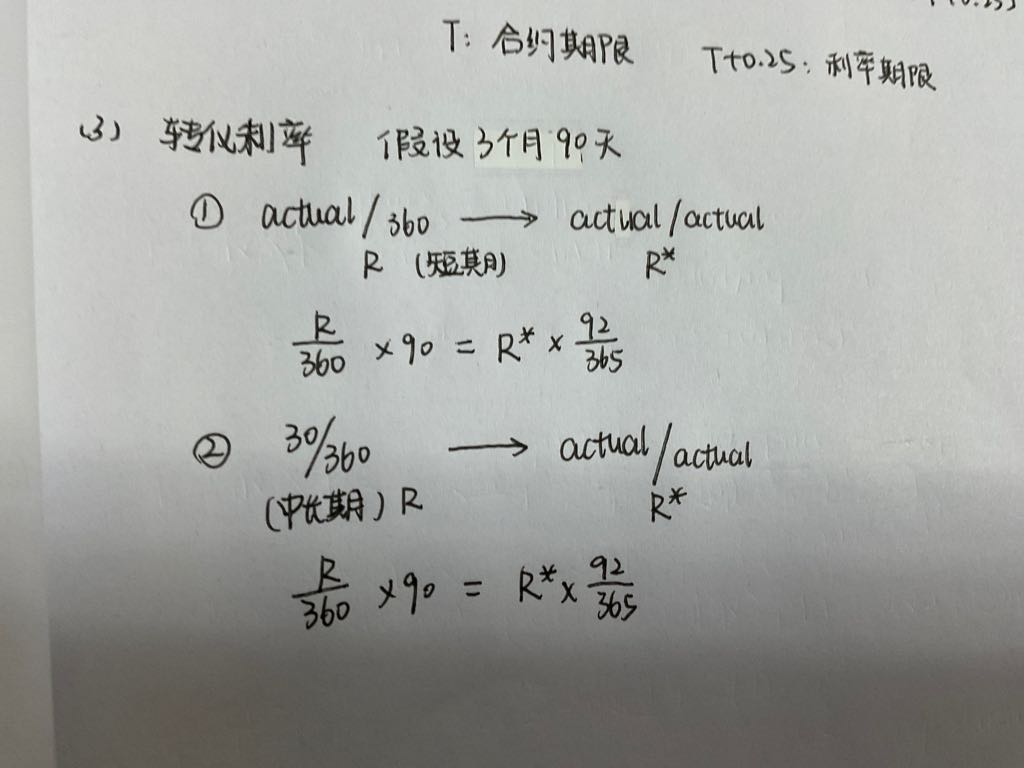 T: 合约期限
T+0.25: 利率期限
(3) 转化利率 假设3个月90天
① actual/360 → actual/actual
R (短期) R*
R/360 × 90 = R* × 92/365
② 30/360 → actual/actual
(中长期) R R*
R/360 × 90 = R* × 92/365